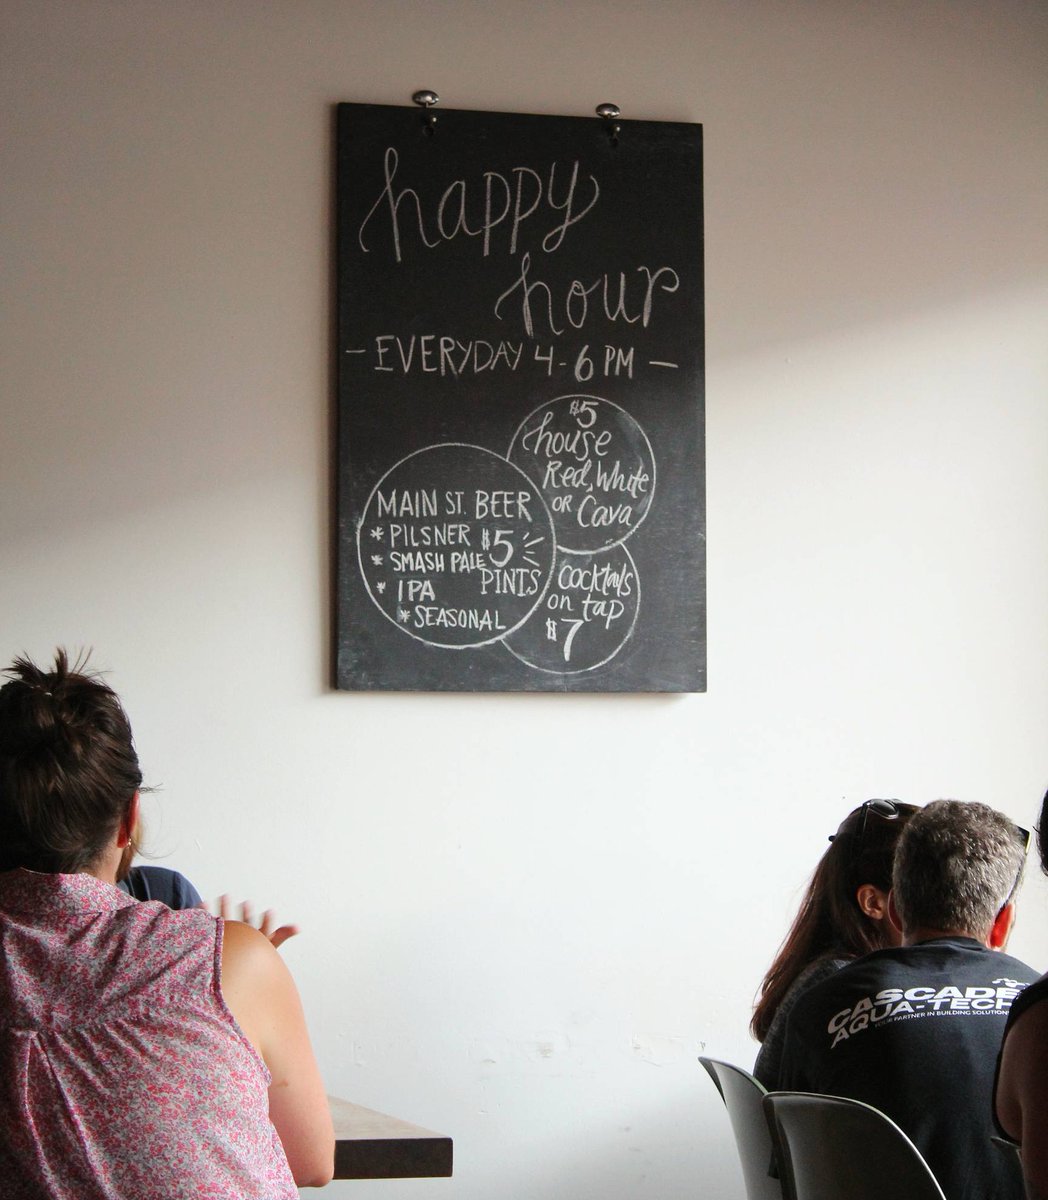 happy
hour
- EVERYDAY 4-6 PM -
$5
house
Red, White
OR Cava
MAIN ST. BEER
* PILSNER
* SMASH PALE
* IPA
* SEASONAL
$5
PINTS
cocktails
on tap
$7
CASCADE
AQUA-TECH
YOUR PARTNER IN BUILDING SOLUTIONS